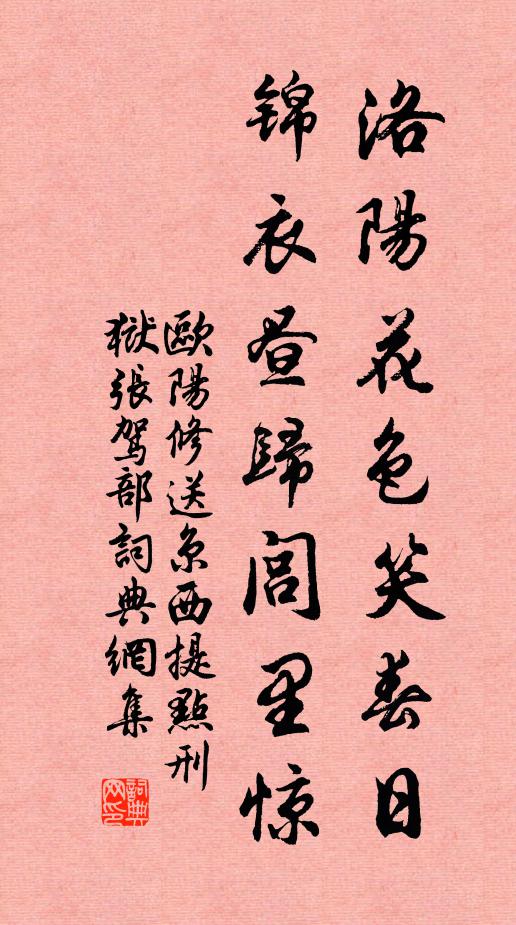 洛陽花色笑春日
锦衣昼歸閭里惊
歐陽修送京西提點刑
獄張駕部詞典網集
詞典網印